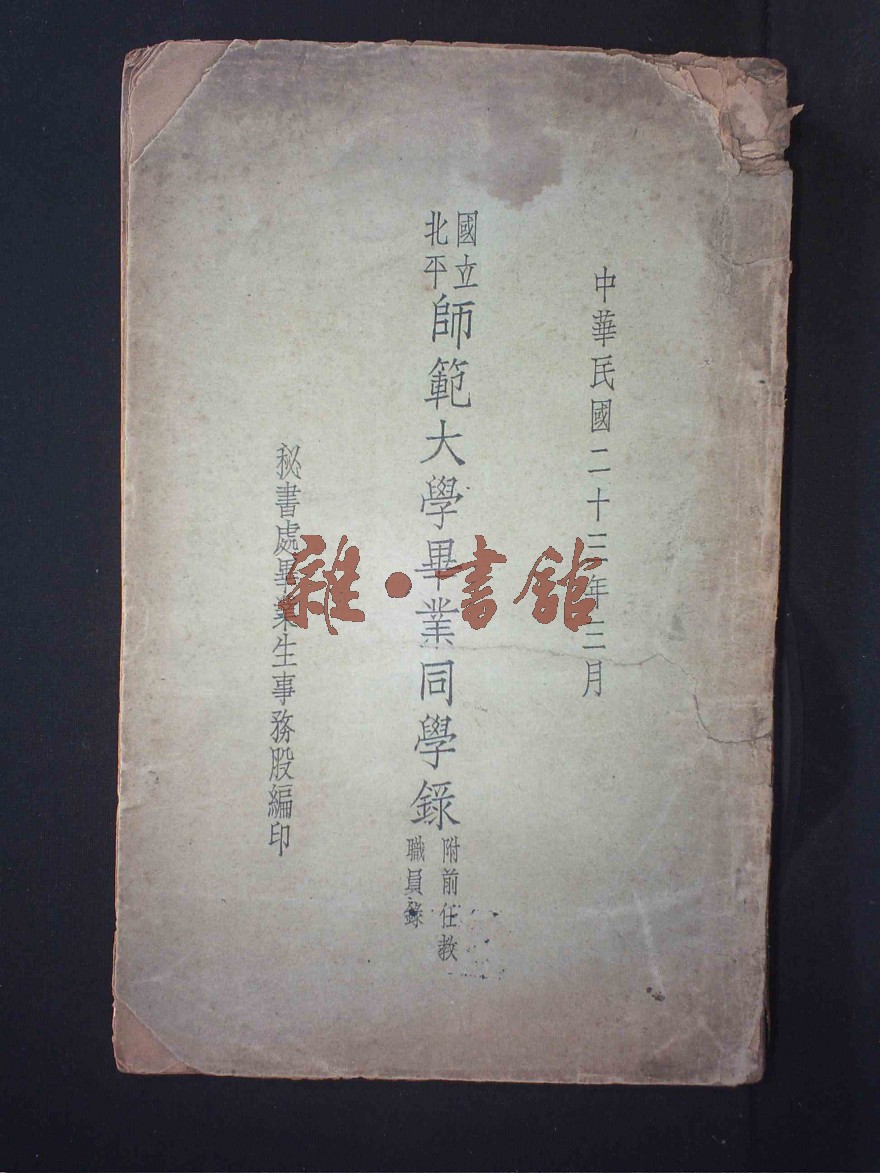 中華民國二十三年三月
國立
北平
師範大學畢業同學錄
附前任教
職員錄
秘書處畢業生事務股編印
雜·書館